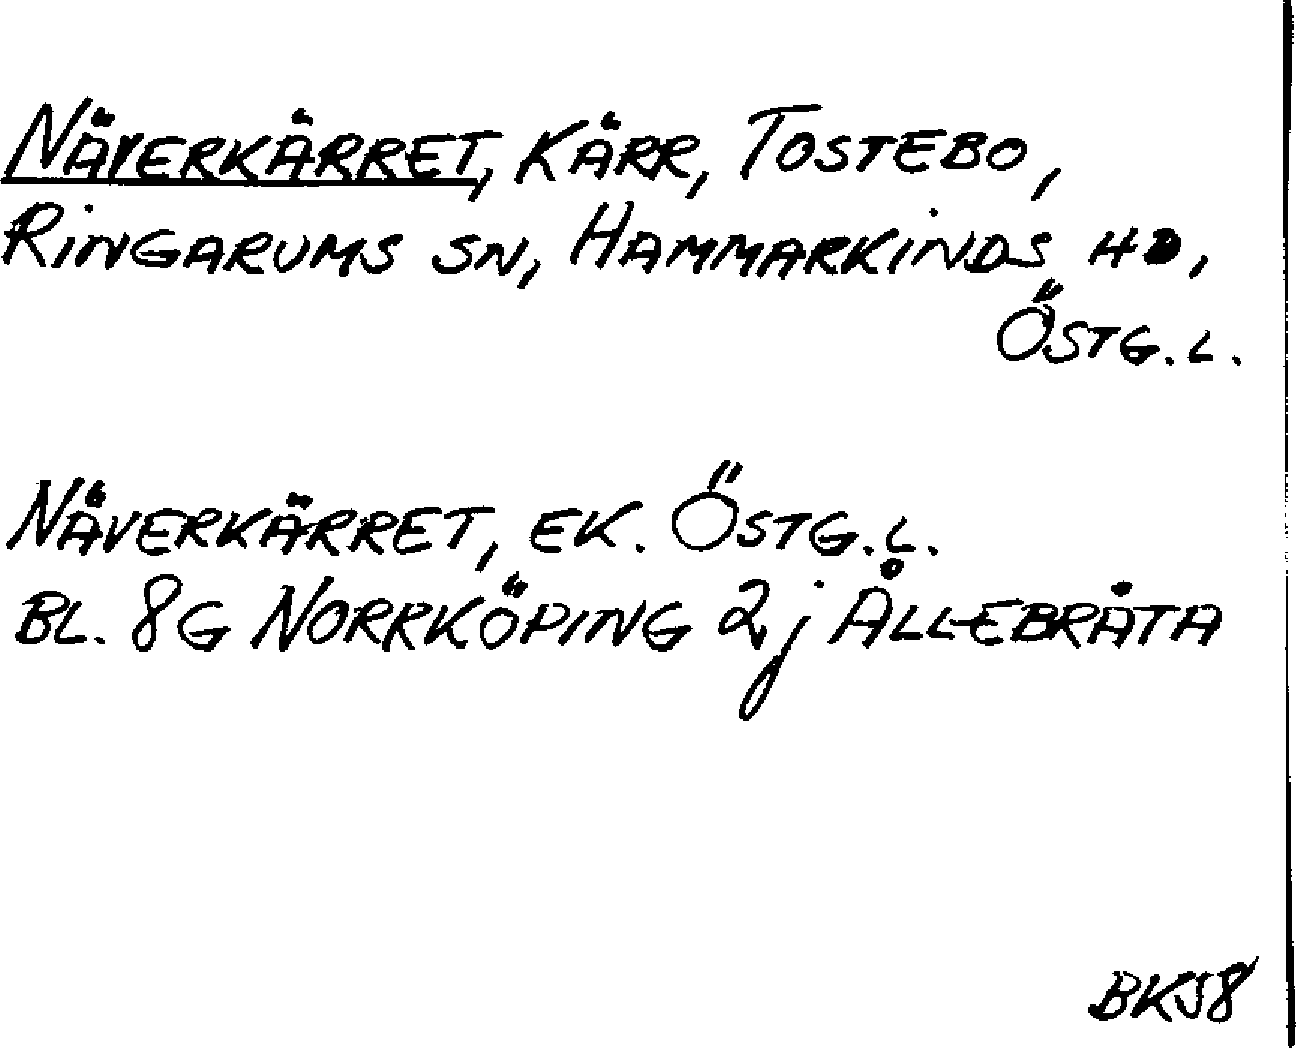 NÄVERKÄRRET, KÄRR, TOSTEBO,
RINGARUMS SN, HAMMARKINDS HD,
ÖSTG.L.
NÄVERKÄRRET, EK. ÖSTG.L.
BL. 8G NORRKÖPING 2j ÅLLEBRÅTA
BKS8